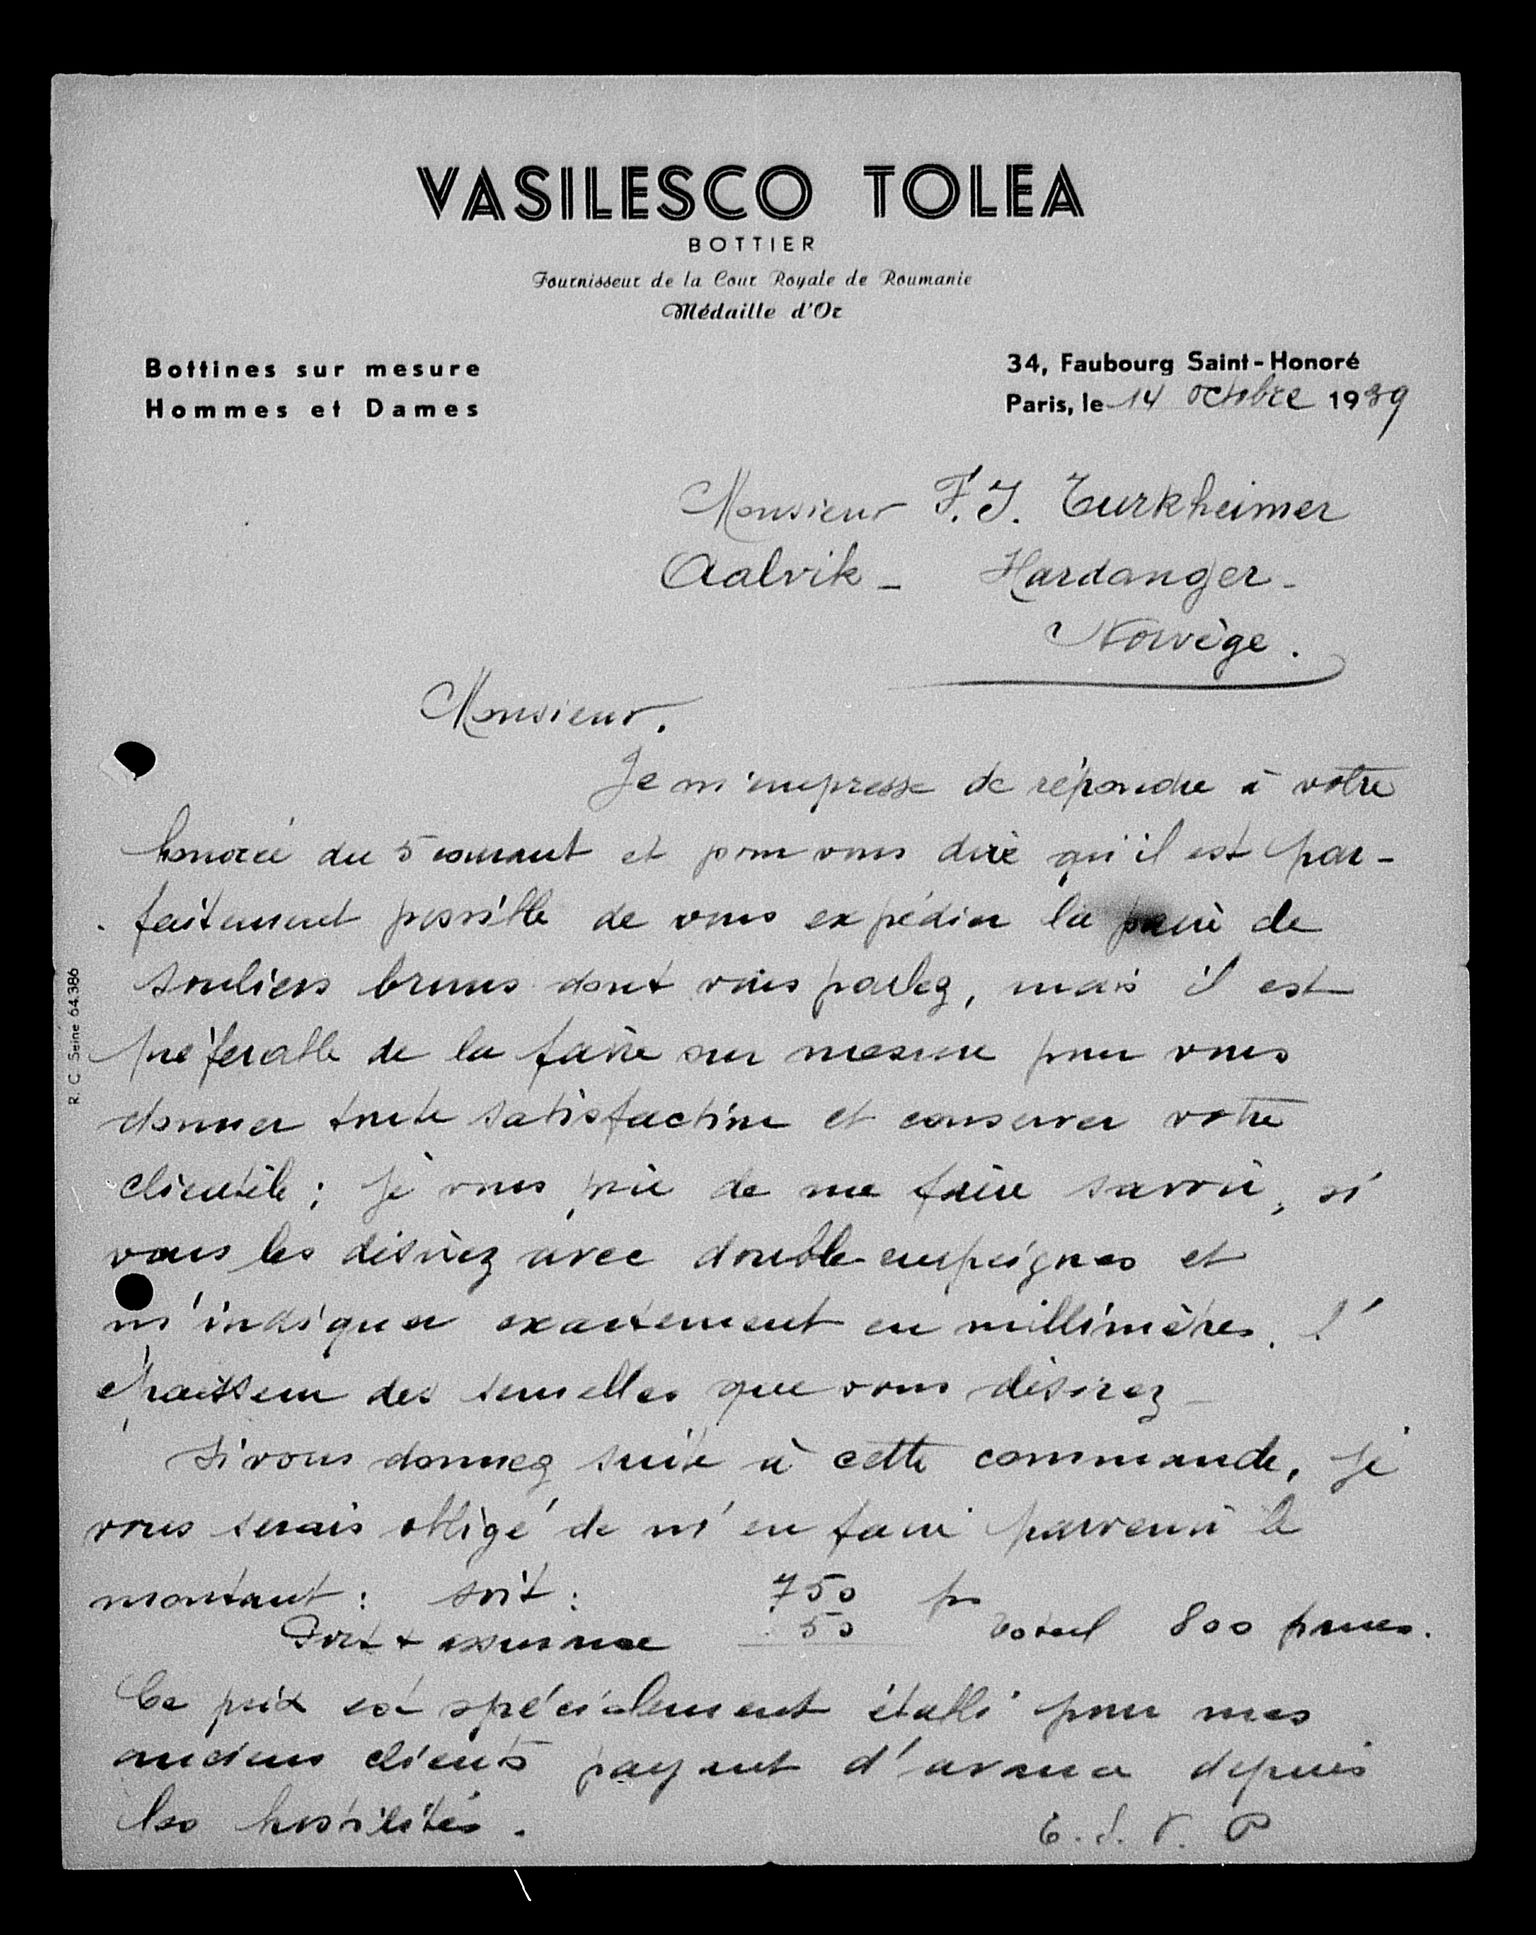 VASILESCO TOLEA
BOTTIER
Fournisseur de la Cour Royale de Roumanie
Médaille d'Or
Bottines sur mesure
Hommes et Dames
34, Faubourg Saint-Honoré
Paris, le 14 octobre 1939
Monsieur F. J. Turkheimer
Aalvik - Hardanger -
Norvège.
Monsieur.
Je m'empresse de répondre à votre
honorée du 5 courant et pour vous dire qu'il est par-
faitement possible de vous expédier la paire de
souliers bruns dont vous parlez, mais il est
préferable de la faire sur mesure pour vous
donner toute satisfaction et conserver votre
clientèle; je vous prie de me faire savoir, si
vous les désirez avec double empeignes et
m'indiquer exactement en millimètres, l'
épaisseur des semelles que vous désirez -
Si vous donnez suite à cette commande, je
vous serais obligé de m'en faire parvenir le
montant: soit: 750 frs
Port + assurance 50 Total 800 francs.
Ce prix est spécialement établi pour mes
anciens clients payant d'avance depuis
les hostilités.
T. S. V. P
R. C. Seine 64.386